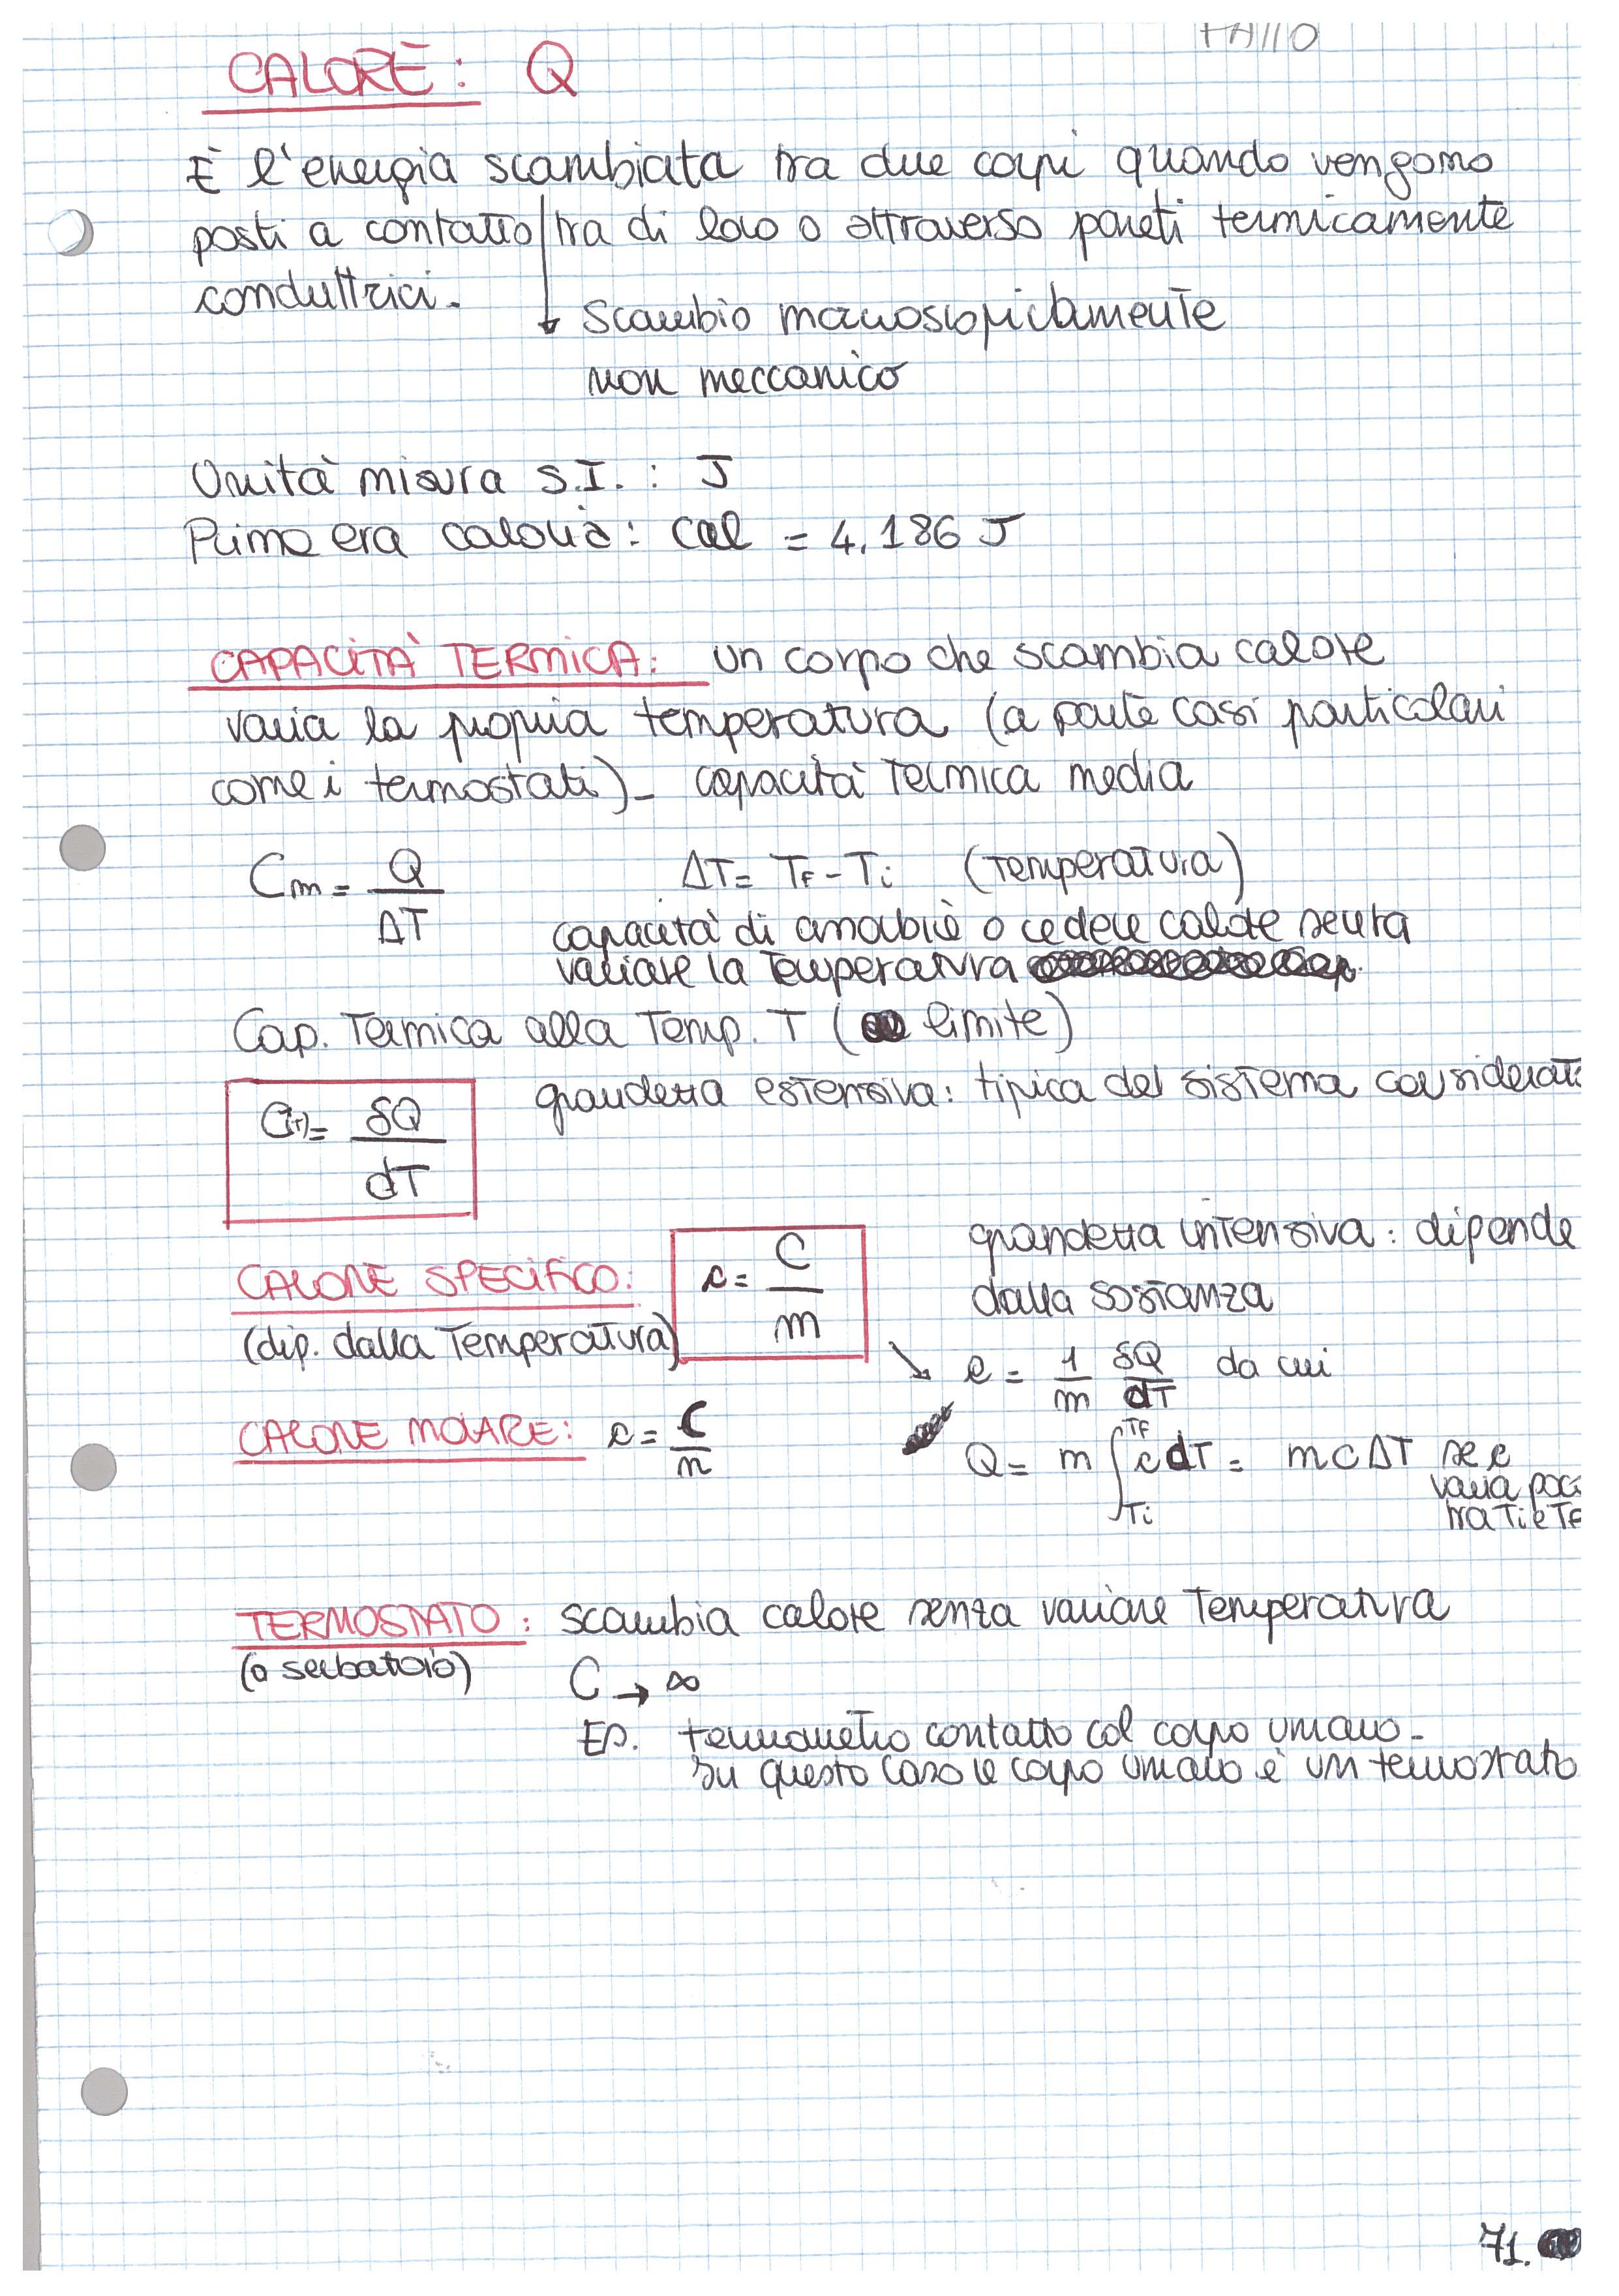 CALORE: Q
È l'energia scambiata tra due corpi quando vengono
posti a contatto tra di loro o attraverso pareti termicamente
conduttrici.
Scambio macroscopicamente
non meccanico
Unità misura S.I. : J
Prima era caloria: cal = 4,186 J
CAPACITÀ TERMICA: un corpo che scambia calore
varia la propria temperatura (a parte casi particolari
come i termostati)_ capacità termica media
Cm = Q / ΔT
ΔT = TF - Ti (temperatura)
capacità di assorbire o cedere calore senza
variare la temperatura
Cap. Termica alla Temp. T ( limite)
C(T) = δQ / dT
grandezza estensiva: tipica del sistema considerat
CALORE SPECIFICO: c = C / m
(dip. dalla Temperatura)
grandezza intensiva: dipende
dalla sostanza
c = 1/m δQ/dT da cui
CALORE MOLARE: c = C / n
Q = m ∫ Ti TF c dT = m c ΔT se c
varia poco
tra Ti e TF
TERMOSTATO: scambia calore senza variare Temperatura
(o serbatoio)
C → ∞
Es. termometro contatto col corpo umano_
In questo caso il corpo umano è un termostato
71.